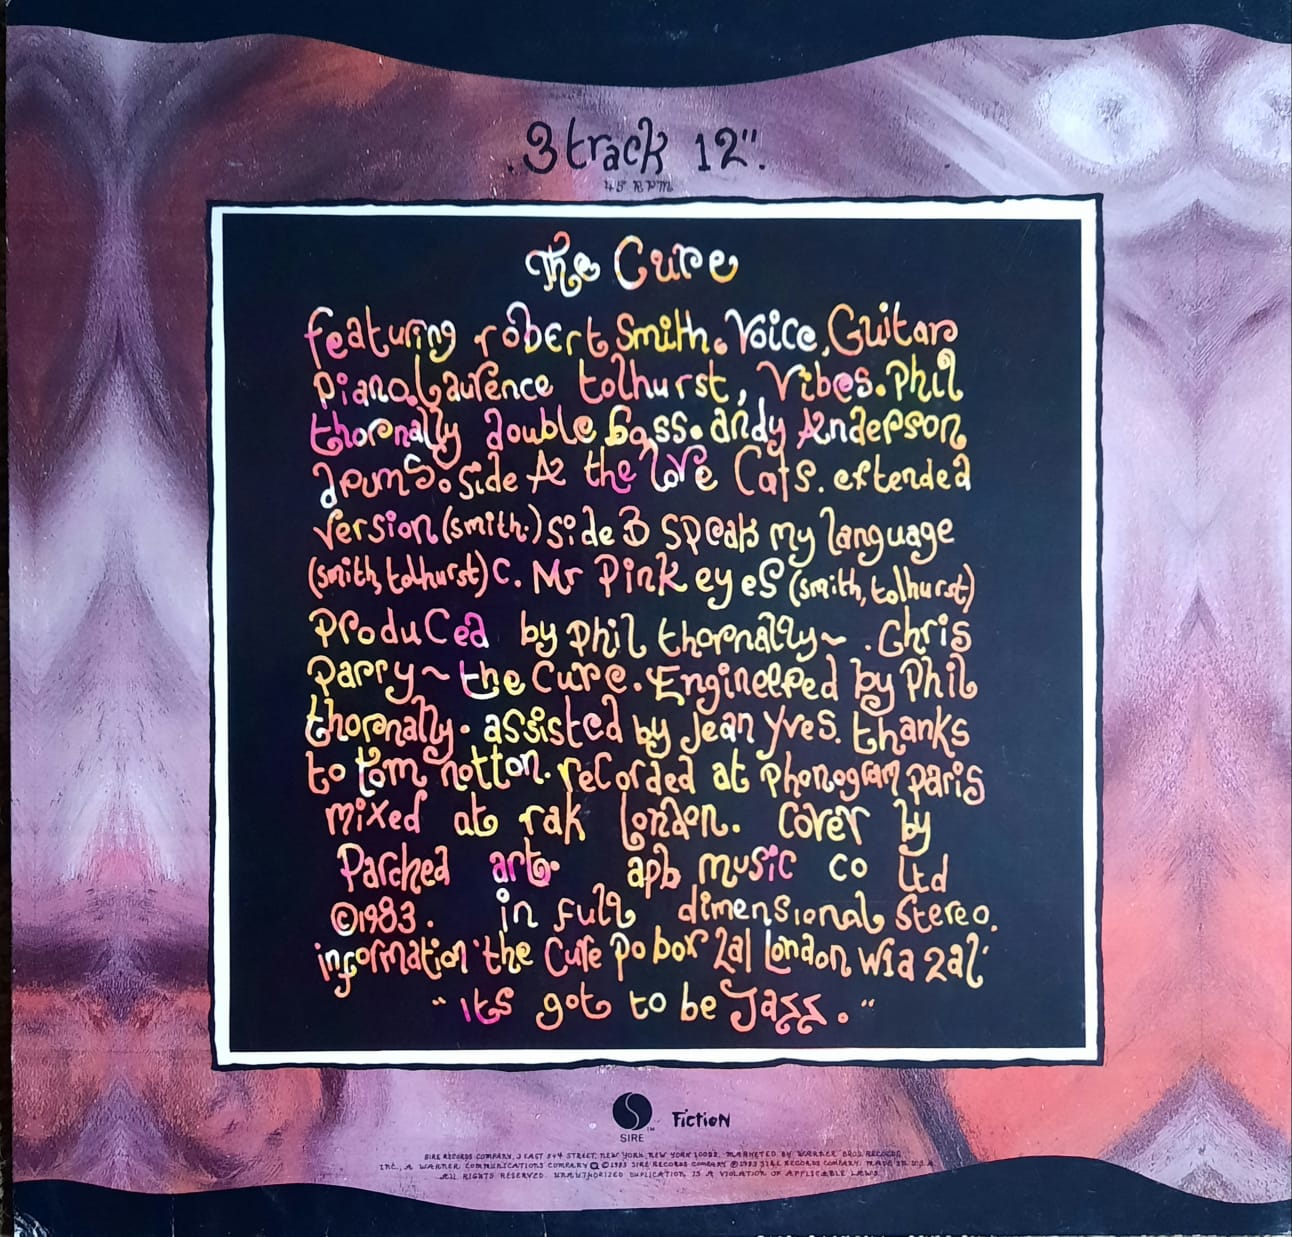 .3 track 12".
45 RPM
The Cure
featuring robert Smith. Voice, Guitar
piano. Laurence tolhurst, Vibes. Phil
thornally double bass. andy Anderson
drums. Side A2 the love Cats. extended
version (smith.) Side B Speak my language
(smith, tolhurst) C. Mr Pink eyes (smith, tolhurst)
produced by phil thornally~ .Chris
parry~ the Cure. Engineered by Phil
thornally. assisted by Jean Yves. thanks
to tom notton. recorded at phonogram paris
mixed at rak london. Cover by
Parched art. apb music co Ltd
©1983. in full dimensional stereo.
information 'the Cure po box 2al London W1a 2al'
"its got to be Jazz."
SIRE ™
Fiction
SIRE RECORDS COMPANY, 3 EAST 54 STREET, NEW YORK, NEW YORK 10022. MARKETED BY WARNER BROS. RECORDS
INC., A WARNER COMMUNICATIONS COMPANY ℗ ©1983 SIRE RECORDS COMPANY ℗1983 SIRE RECORDS COMPANY. MADE IN U.S.A.
ALL RIGHTS RESERVED. UNAUTHORIZED DUPLICATION IS A VIOLATION OF APPLICABLE LAWS.